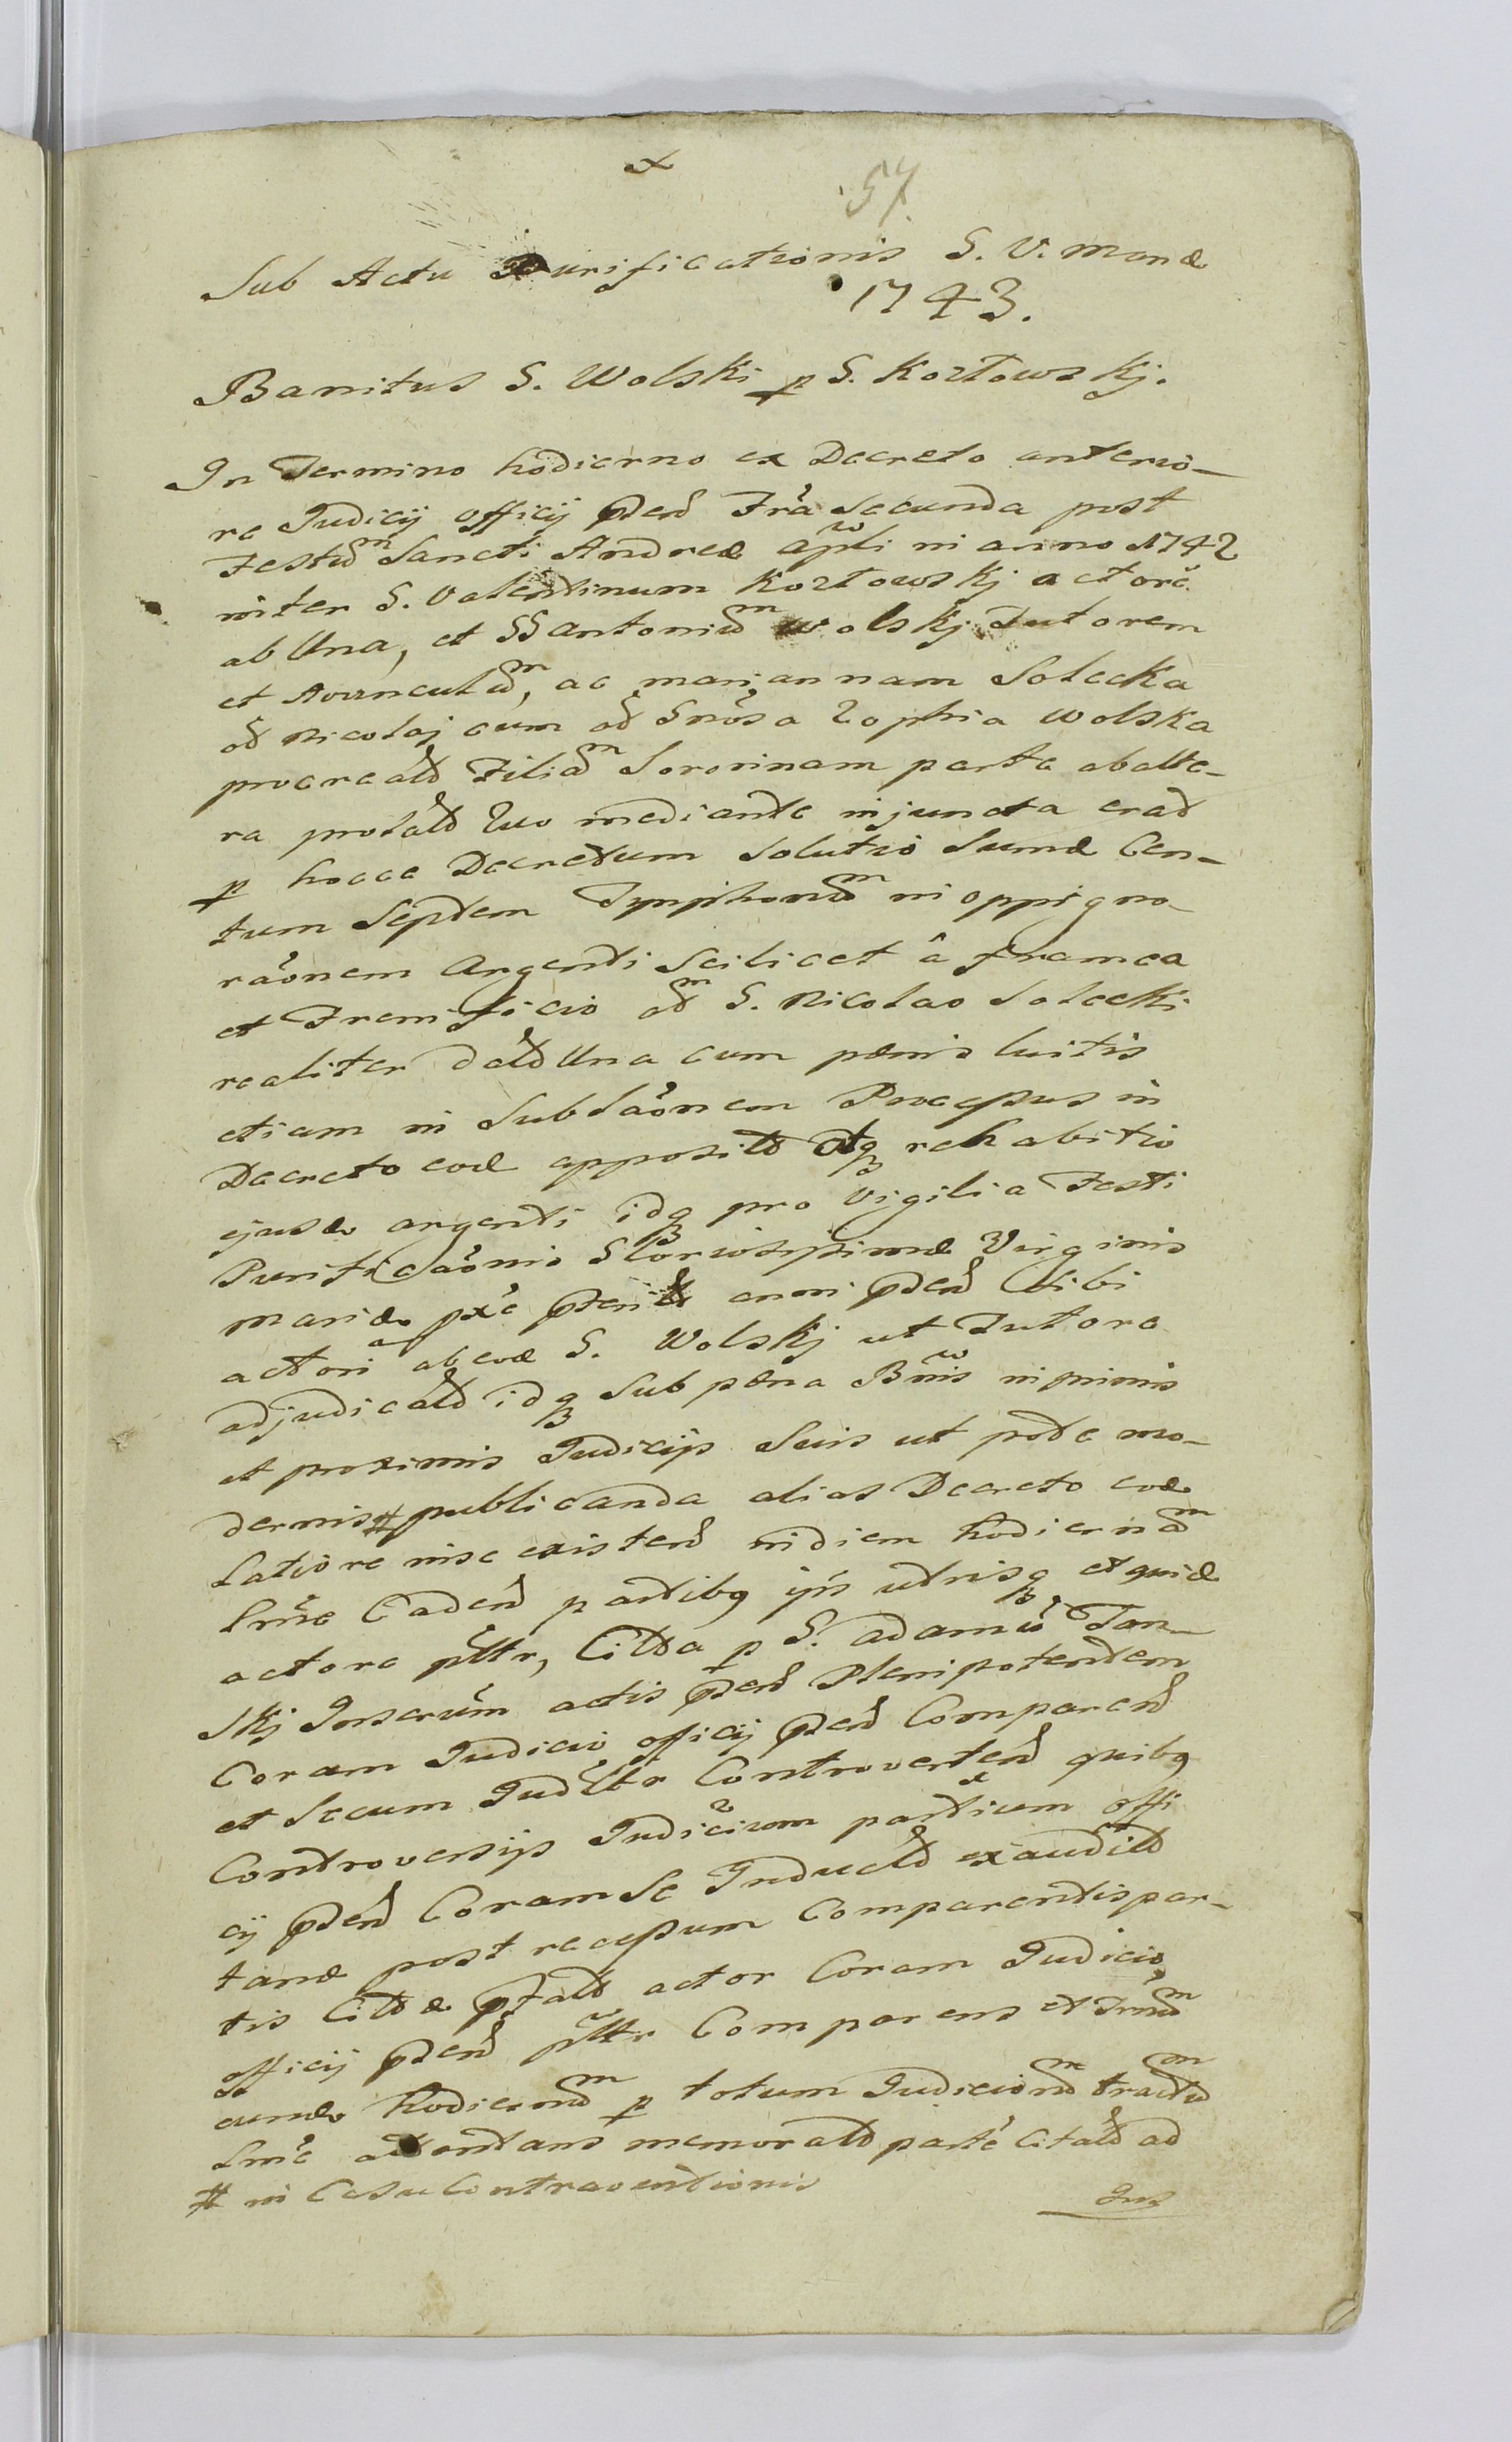 57
Sub Actu Purificationis S. V. Mariæ
1743.
Banitus G. Wolski p G. Kozłowskj.
In Termino hodierno ex Decreto anterio-
re Judicij officij pñd Fra Secunda post
Festum Sancti Andreæ Apli in anno 1742
inter G. Valentinum Kozłowskj actorē
ab Una, et GG Antonium Wolskj Tutorem
et Avunculum, ac Mariannam Solecka
olim Nicolaj cum olim Gnosa Zophia Wolska
procreatā Filiam Sororinam parte ab alte-
ra prolatā quo mediante injuncta erat
p hocce Decretum Solutio Sumæ Cen-
tum Septem Tymphonum in oppigno-
raonem Argenti Scilicet â framea
et Frenificio olim G. Nicolao Solecki
realiter dati Una cum pænis luitis
etiam in Sublaonem Processus in
Decreto eodē appositis atq rehabitio
ejusdē argenti idq pro Vigilia Festi
Purificaonis Gloriosissimæ Virginis
Mariæ pxe præteritā anni pñd Sibi
actori ab eodē G. Wolskj ut Tutore
adjudicatā idq Sub pæna Bnis in primis
et proximis Judicijs Suis ut pote mo-
dernis # publicanda alias Decreto eodē
latiore in se existen in diem hodiernam
lrme Caden partibq ijs utrisq et quidē
actore pltr, Citta p G. Adamū Tań-
skj Inscrum actis pñd Plenipotentem
Coram Judicio officij pñd Comparen
et Secum Judltr Controverten quibq
Controversijs Judicium partium offi
cij pñd Coram Se Inductis exauditis
tandē post recessum Comparentis par-
tis Cittæ præfatus actor Coram Judicio
officij pñd pltr Comparens et Trnum
eundē hodiernum p totum Judiciorum tractum
lrme attentans memoratā partē Citatā ad
# in Casu Contraventionis
Jus